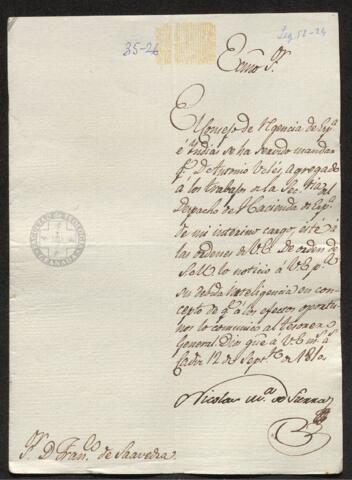 35-26
Leg 52-24
Exmo Sr.
El Consejo de Regencia de Espa.
é Indias se ha servido mandar
q.e D. Antonio Velés, agregado
á los trabajos de la Sec.ria del
Despacho de Hacienda de Esp.a
de mi interino cargo, esté á
las ordenes de V.E. De orden de
S.M. lo noticio á V.E. p.a
su debida inteligencia en con-
cepto de q.e á los efectos oportu-
nos lo comunico al tesorero
General. Dios gue. á V.E. m.s a.s
Cadiz 12 de Sept.e de 1810.
Nicolas M.a de Sierra
Sr. D. Fran.co de Saavedra